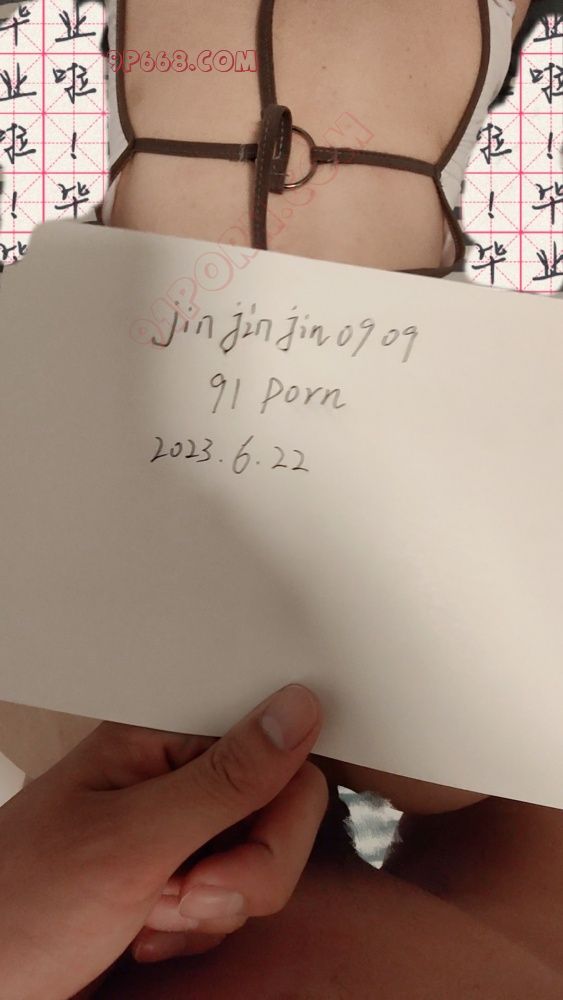 毕 业
业 啦
啦 ！
！ 毕
毕
9P668.COM
91PORN.COM
业
啦
啦 ！
！ 毕
毕 业
jinjinjin0909
91 Porn
2023.6.22